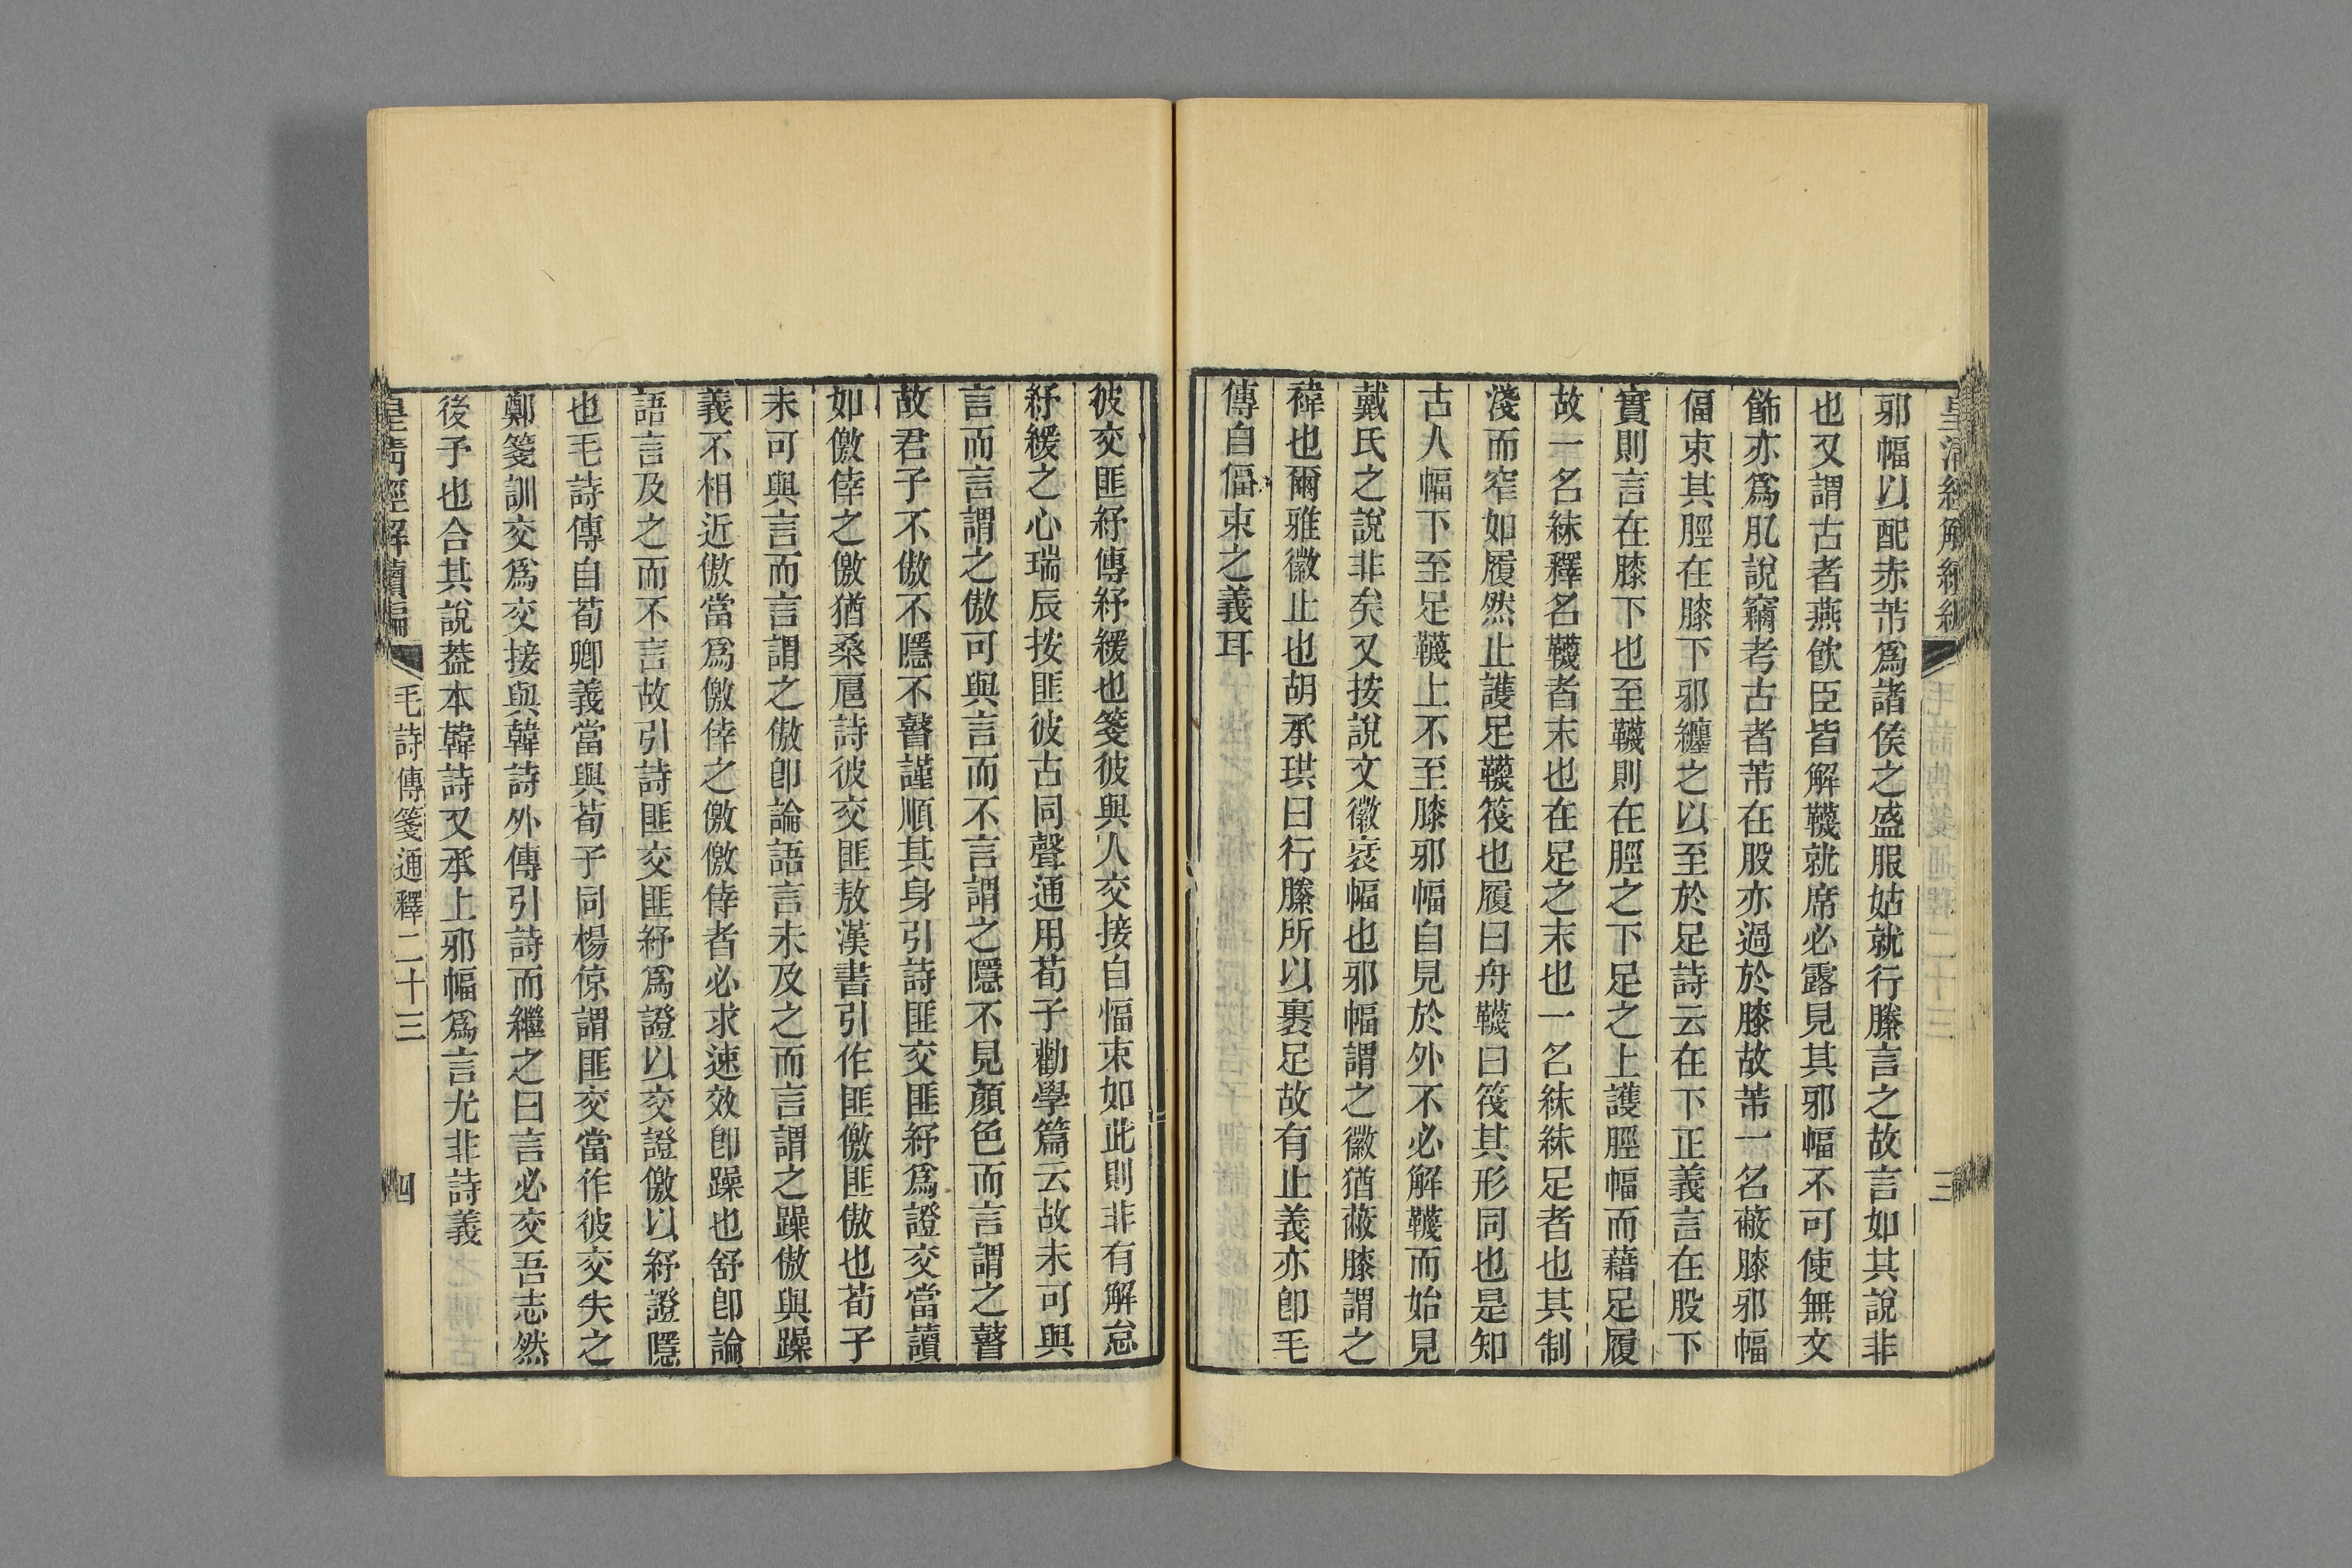 皇清經解續編 三
邪幅以配赤芾爲諸侯之盛服姑就行縢言之故言如其說非
也又謂古者燕飮臣皆解韤就席必露見其邪幅不可使無文
飾亦爲肊說竊考古者芾在股亦過於膝故芾一名蔽膝邪幅
偪束其脛在膝下邪纏之以至於足詩云在下正義言在股下
實則言在膝下也至韤則在脛之下足之上護脛幅而藉足履
故一名絑釋名韤者末也在足之末也一名絑絑足者也其制
淺而窄如履然止護足韤筏也履曰舟韤曰筏其形同也是知
古人幅下至足韤上不至膝邪幅自見於外不必解韤而始見
戴氏之說非矣又按說文徽衺幅也邪幅謂之徽猶蔽膝謂之
褘也爾雅徽止也胡承珙曰行縢所以裹足故有止義亦卽毛
傳自偪束之義耳
彼交匪紓傳紓緩也箋彼與人交接自愊束如此則非有解怠
紓緩之心瑞辰按匪彼古同聲通用荀子勸學篇云故未可與
言而言謂之傲可與言而不言謂之隱不見顏色而言謂之瞽
故君子不傲不隱不瞽謹順其身引詩匪交匪紓爲證交當讀
如儌倖之儌猶桑扈詩彼交匪敖漢書引作匪儌匪傲也荀子
未可與言而言謂之傲卽論語言未及之而言謂之躁傲與躁
義不相近傲當爲儌倖之儌儌倖者必求速效卽躁也舒卽論
語言及之而不言故引詩匪交匪紓爲證以交證儌以紓證隱
也毛詩傳自荀卿義當與荀子同楊倞謂匪交當作彼交失之
鄭箋訓交爲交接與韓詩外傳引詩而繼之曰言必交吾志然
後予也合其說葢本韓詩又承上邪幅爲言尤非詩義
皇淸經解續編 毛詩傳箋通釋二十三 四